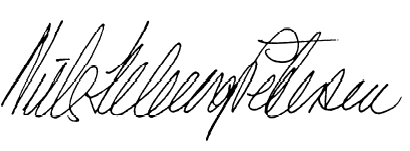 Niels Helveg Petersen